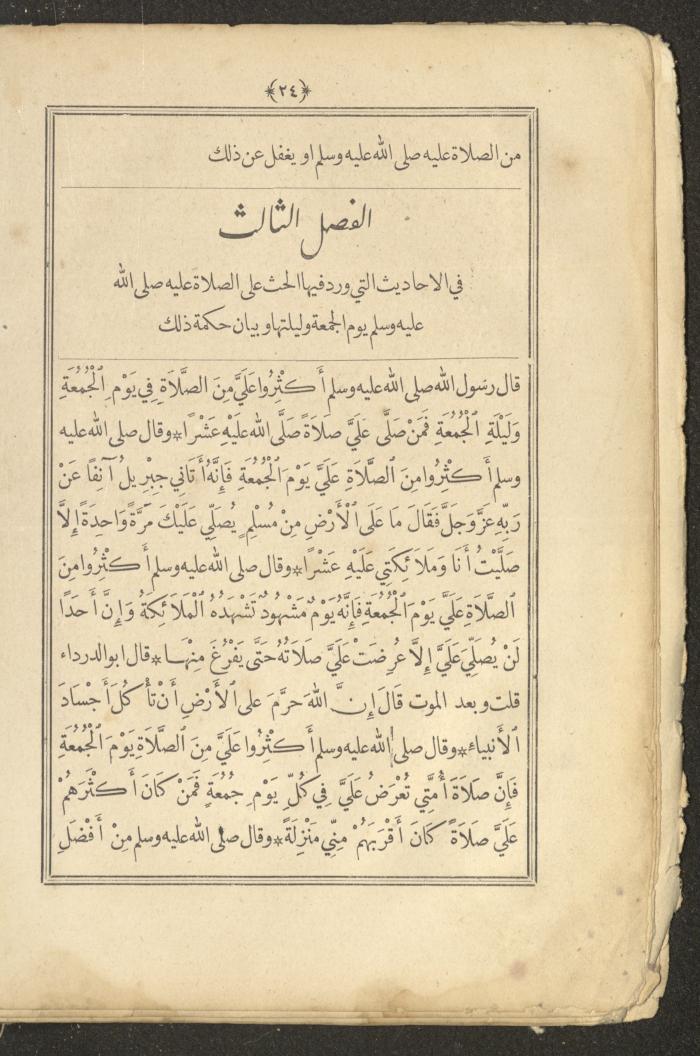 ﴿٢٤﴾
من الصلاة عليه صلى الله عليه وسلم او يغفل عن ذلك
الفصل الثالث
في الاحاديث التي ورد فيها الحث على الصلاة عليه صلى الله
عليه وسلم يوم الجمعة وليلتها وبيان حكمة ذلك
قال رسول الله صلى الله عليه وسلم أَكْثِرُوا عَلَيَّ مِنَ الصَّلَاةِ فِي يَوْمِ الْجُمُعَةِ
وَلَيْلَةِ الْجُمُعَةِ فَمَنْ صَلَّى عَلَيَّ صَلَاةً صَلَّى الله عَلَيْهِ عَشْرًا * وقال صلى الله عليه
وسلم أَكْثِرُوا مِنَ الصَّلَاةِ عَلَيَّ يَوْمَ الْجُمُعَةِ فَإِنَّهُ أَتَانِي جِبْرِيلُ آنِفًا عَنْ
رَبِّهِ عَزَّ وَجَلَّ فَقَالَ مَا عَلَى الْأَرْضِ مِنْ مُسْلِمٍ يُصَلِّي عَلَيْكَ مَرَّةً وَاحِدَةً إِلَّا
صَلَّيْتُ أَنَا وَمَلَائِكَتِي عَلَيْهِ عَشْرًا * وقال صلى الله عليه وسلم أَكْثِرُوا مِنَ
الصَّلَاةِ عَلَيَّ يَوْمَ الْجُمُعَةِ فَإِنَّهُ يَوْمٌ مَشْهُودٌ تَشْهَدُهُ الْمَلَائِكَةُ وَإِنَّ أَحَدًا
لَنْ يُصَلِّيَ عَلَيَّ إِلَّا عُرِضَتْ عَلَيَّ صَلَاتُهُ حَتَّى يَفْرُغَ مِنْهَا * قال ابو الدرداء
قلت وبعد الموت قَالَ إِنَّ اللهَ حَرَّمَ عَلى الْأَرْضِ أَنْ تَأْكُلَ أَجْسَادَ
الْأَنبياءِ * وقال صلى الله عليه وسلم أَكْثِرُوا عَلَيَّ مِنَ الصَّلَاةِ يَوْمَ الْجُمُعَةِ
فَإِنَّ صَلَاةَ أُمَّتِي تُعْرَضُ عَلَيَّ فِي كُلِّ يَوْمِ جُمُعَةٍ فَمَنْ كَانَ أَكْثَرَهُمْ
عَلَيَّ صَلَاةً كَانَ أَقْرَبَهُمْ مِنِّي مَنْزِلَةً * وقال صلى الله عليه وسلم مِنْ أَفْضَلِ